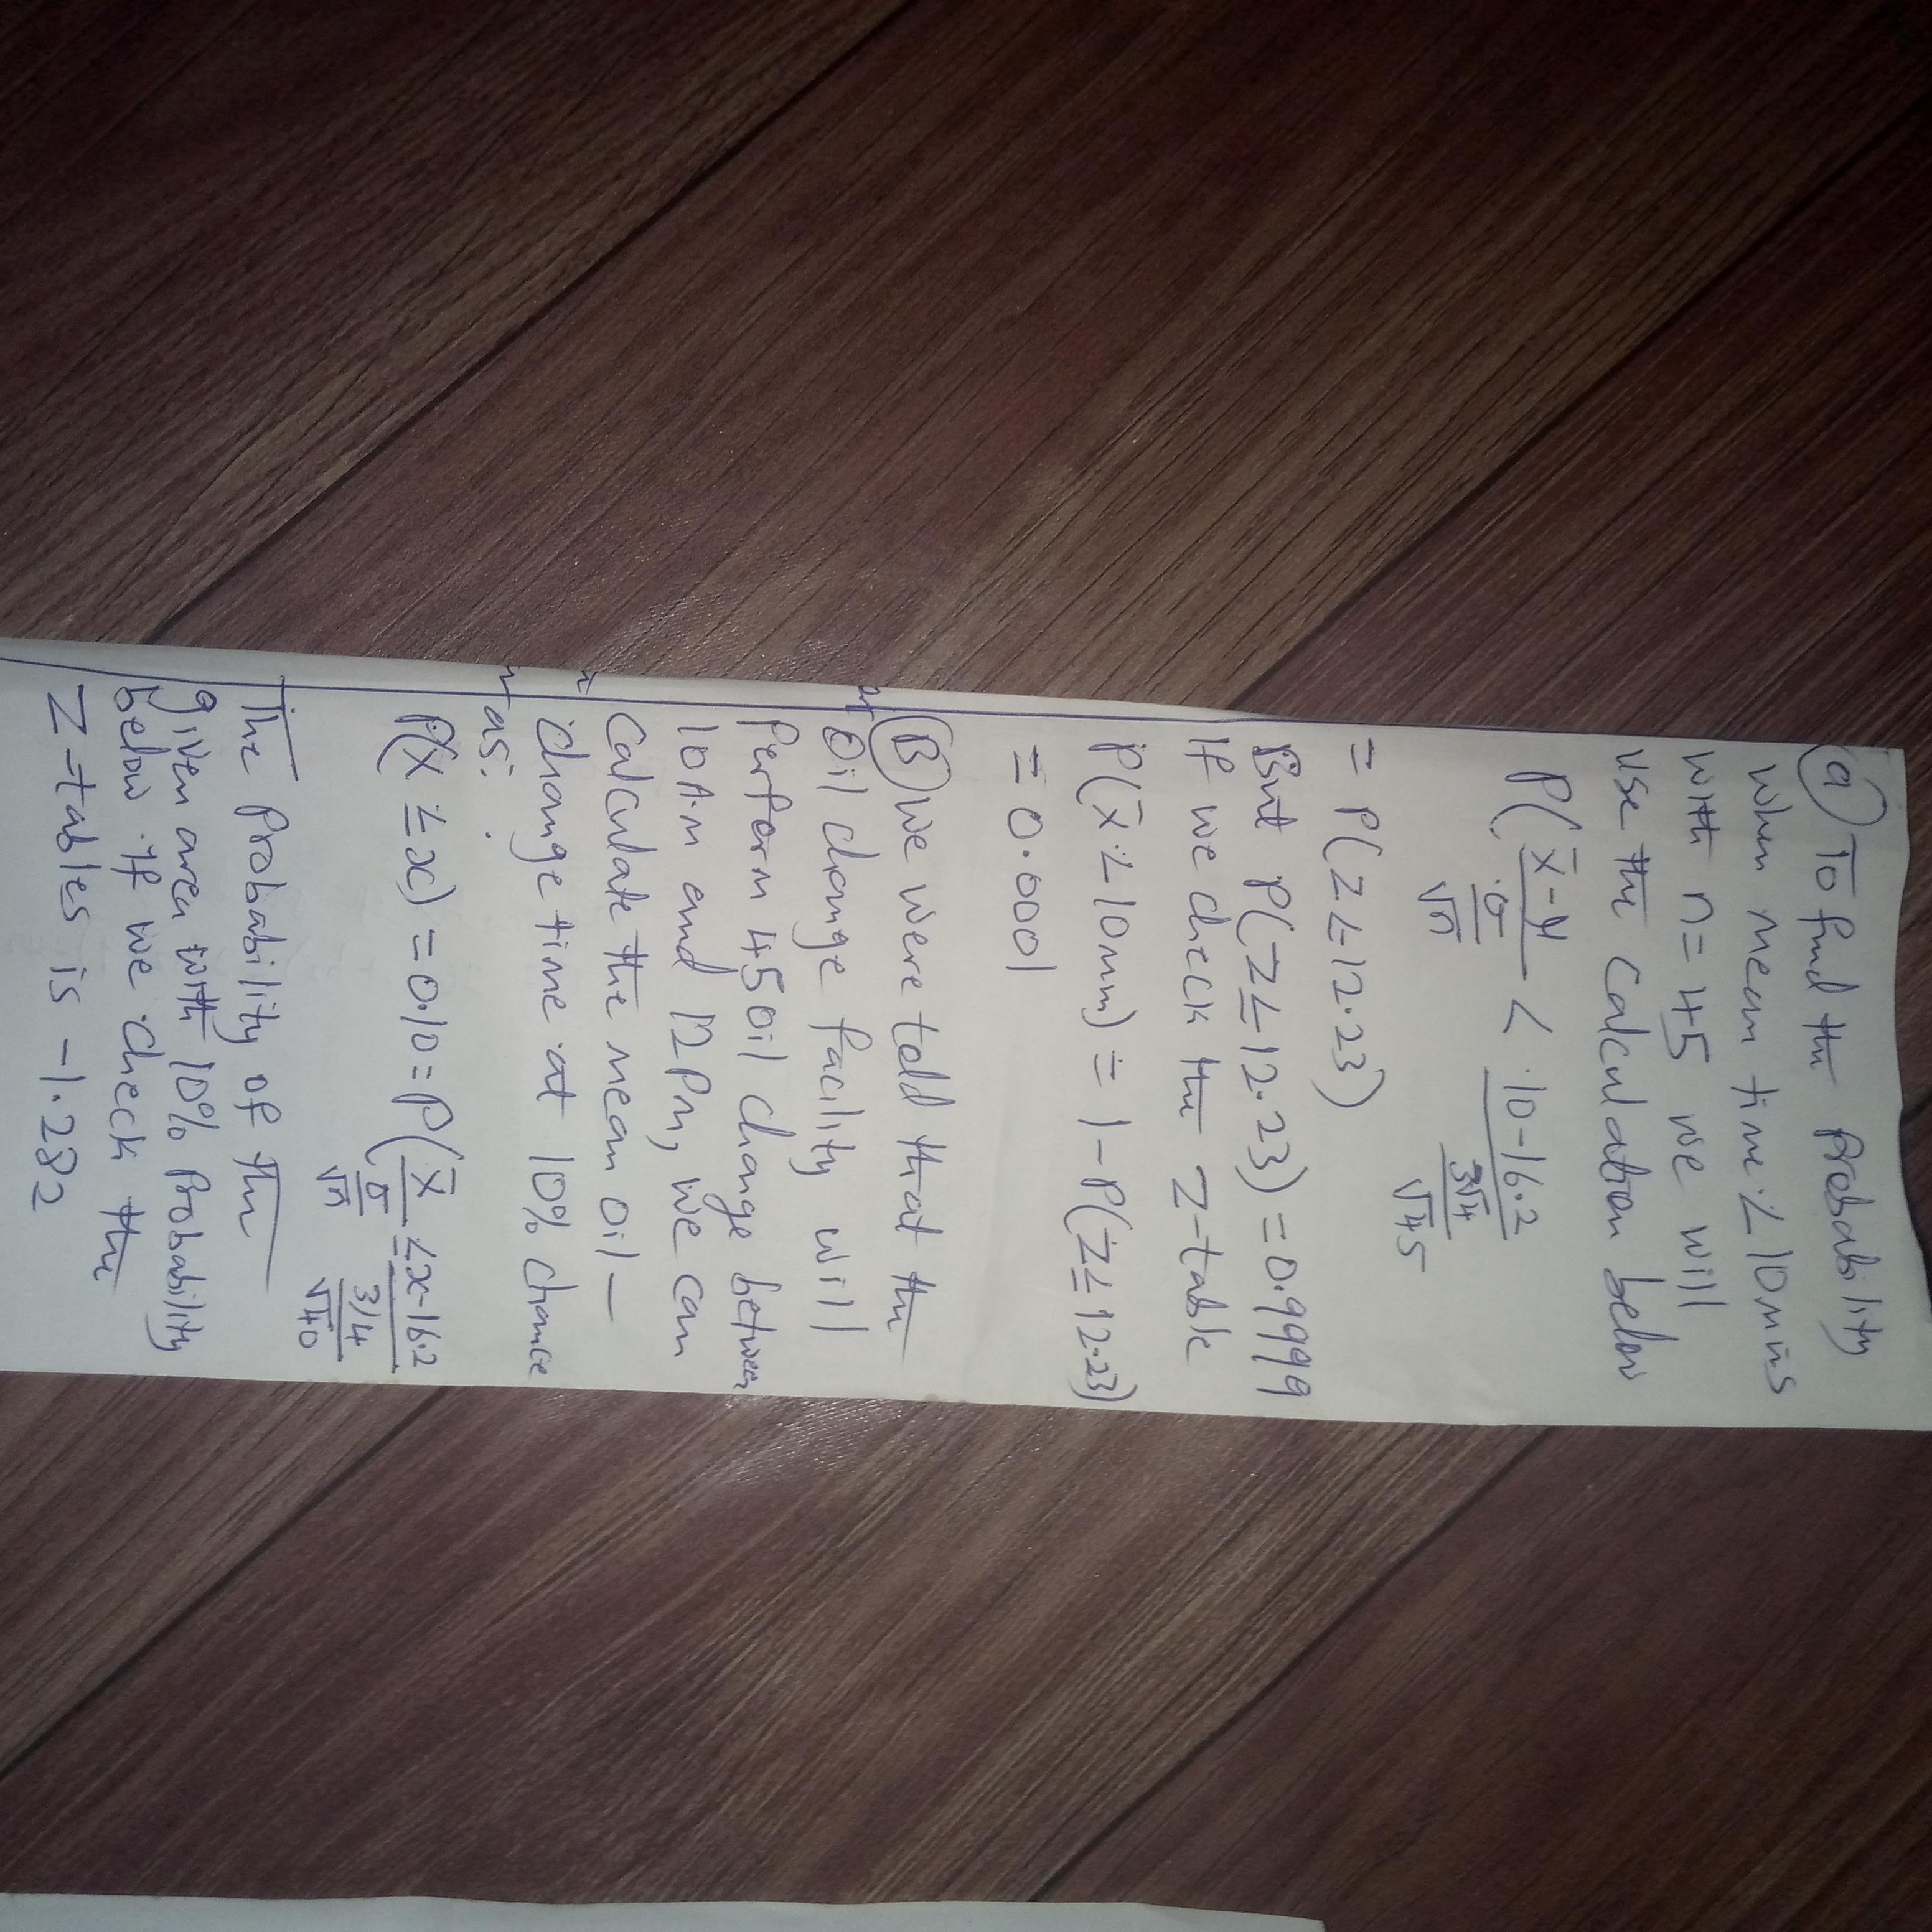 (a) To find the probability
when mean time ∠ 10mins
with n = 45 we will
use the calculation below
P( x̄ - μ / σ/√n < 10 - 16.2 / 3√4/√45
= P(Z ∠ -12.23)
But P(Z ≤ -12.23) = 0.9999
If we check the Z-table
P(x̄ ∠ 10mm) = 1 - P(Z ≤ 12.23)
= 0.0001
(B) we were told that the
Oil change facility will
Perform 45 Oil change between
10A.m and 12 Pm, we can
Calculate the mean oil -
change time at 10% chance
as:
P(x ≤ x) = 0.10 = P( x̄ / σ/√n ≤ x - 16.2 / 3/4/√40
The Probability of the
given area with 10% Probability
below. If we check the
Z-tables is -1.282